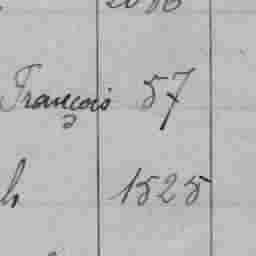 François 57
h 1525